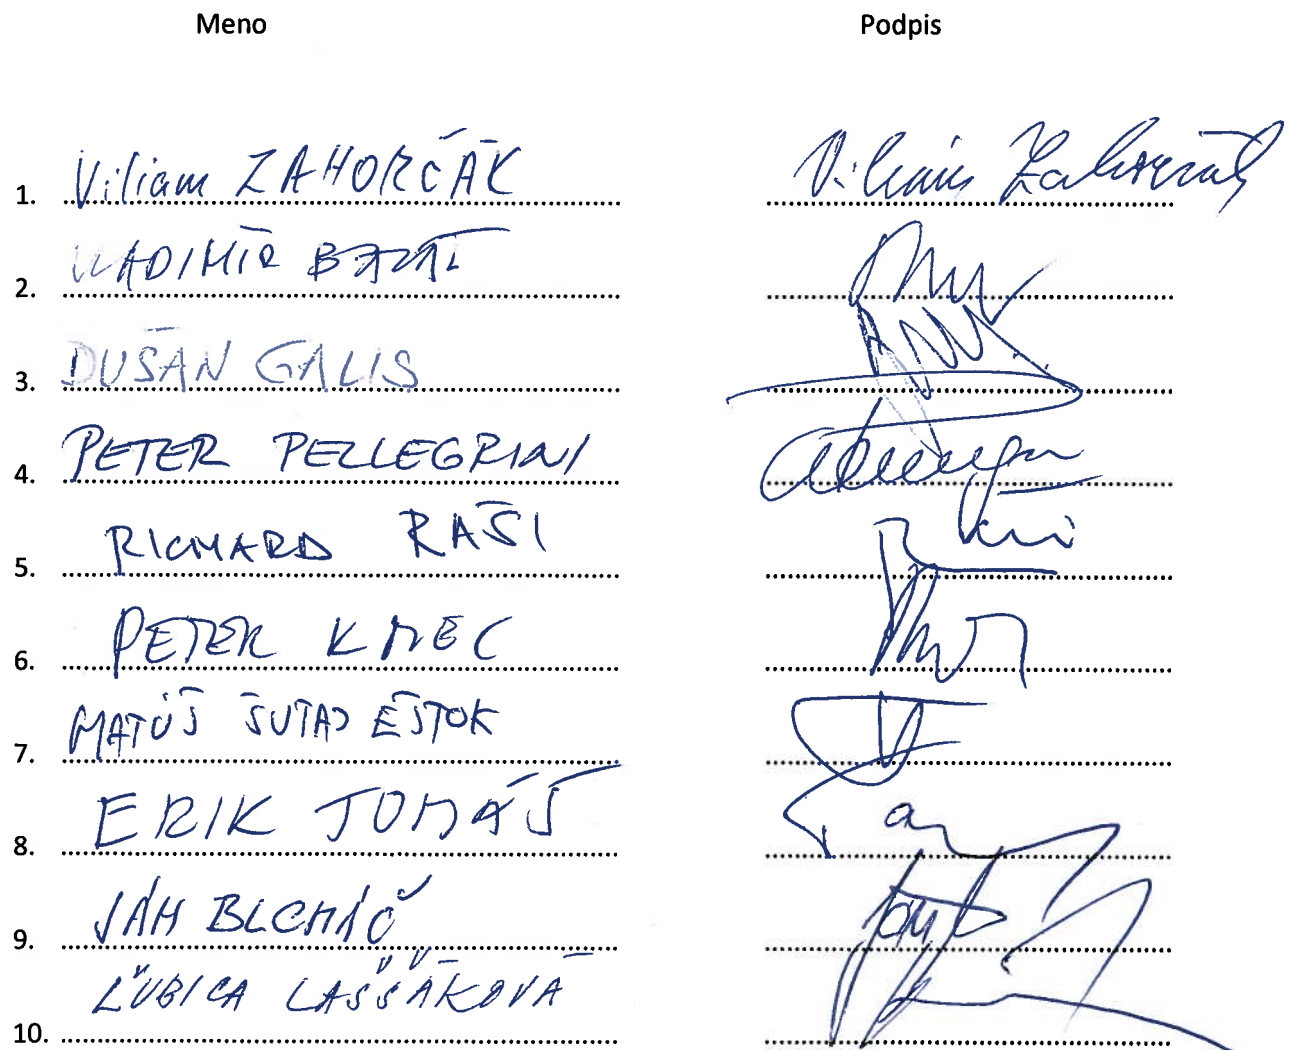 Meno Podpis
1. Viliam ZAHORČÁK Viliam Zahorčák
2. VLADIMÍR BALÁŽ
3. DUŠAN GALIS
4. PETER PELLEGRINI
5. RICHARD RAŠI Raši
6. PETER KMEC
7. MATÚŠ ŠUTAJ EŠTOK
8. ERIK TOMÁŠ
9. JÁN BLCHÁČ
10. ĽUBICA LAŠŠÁKOVÁ